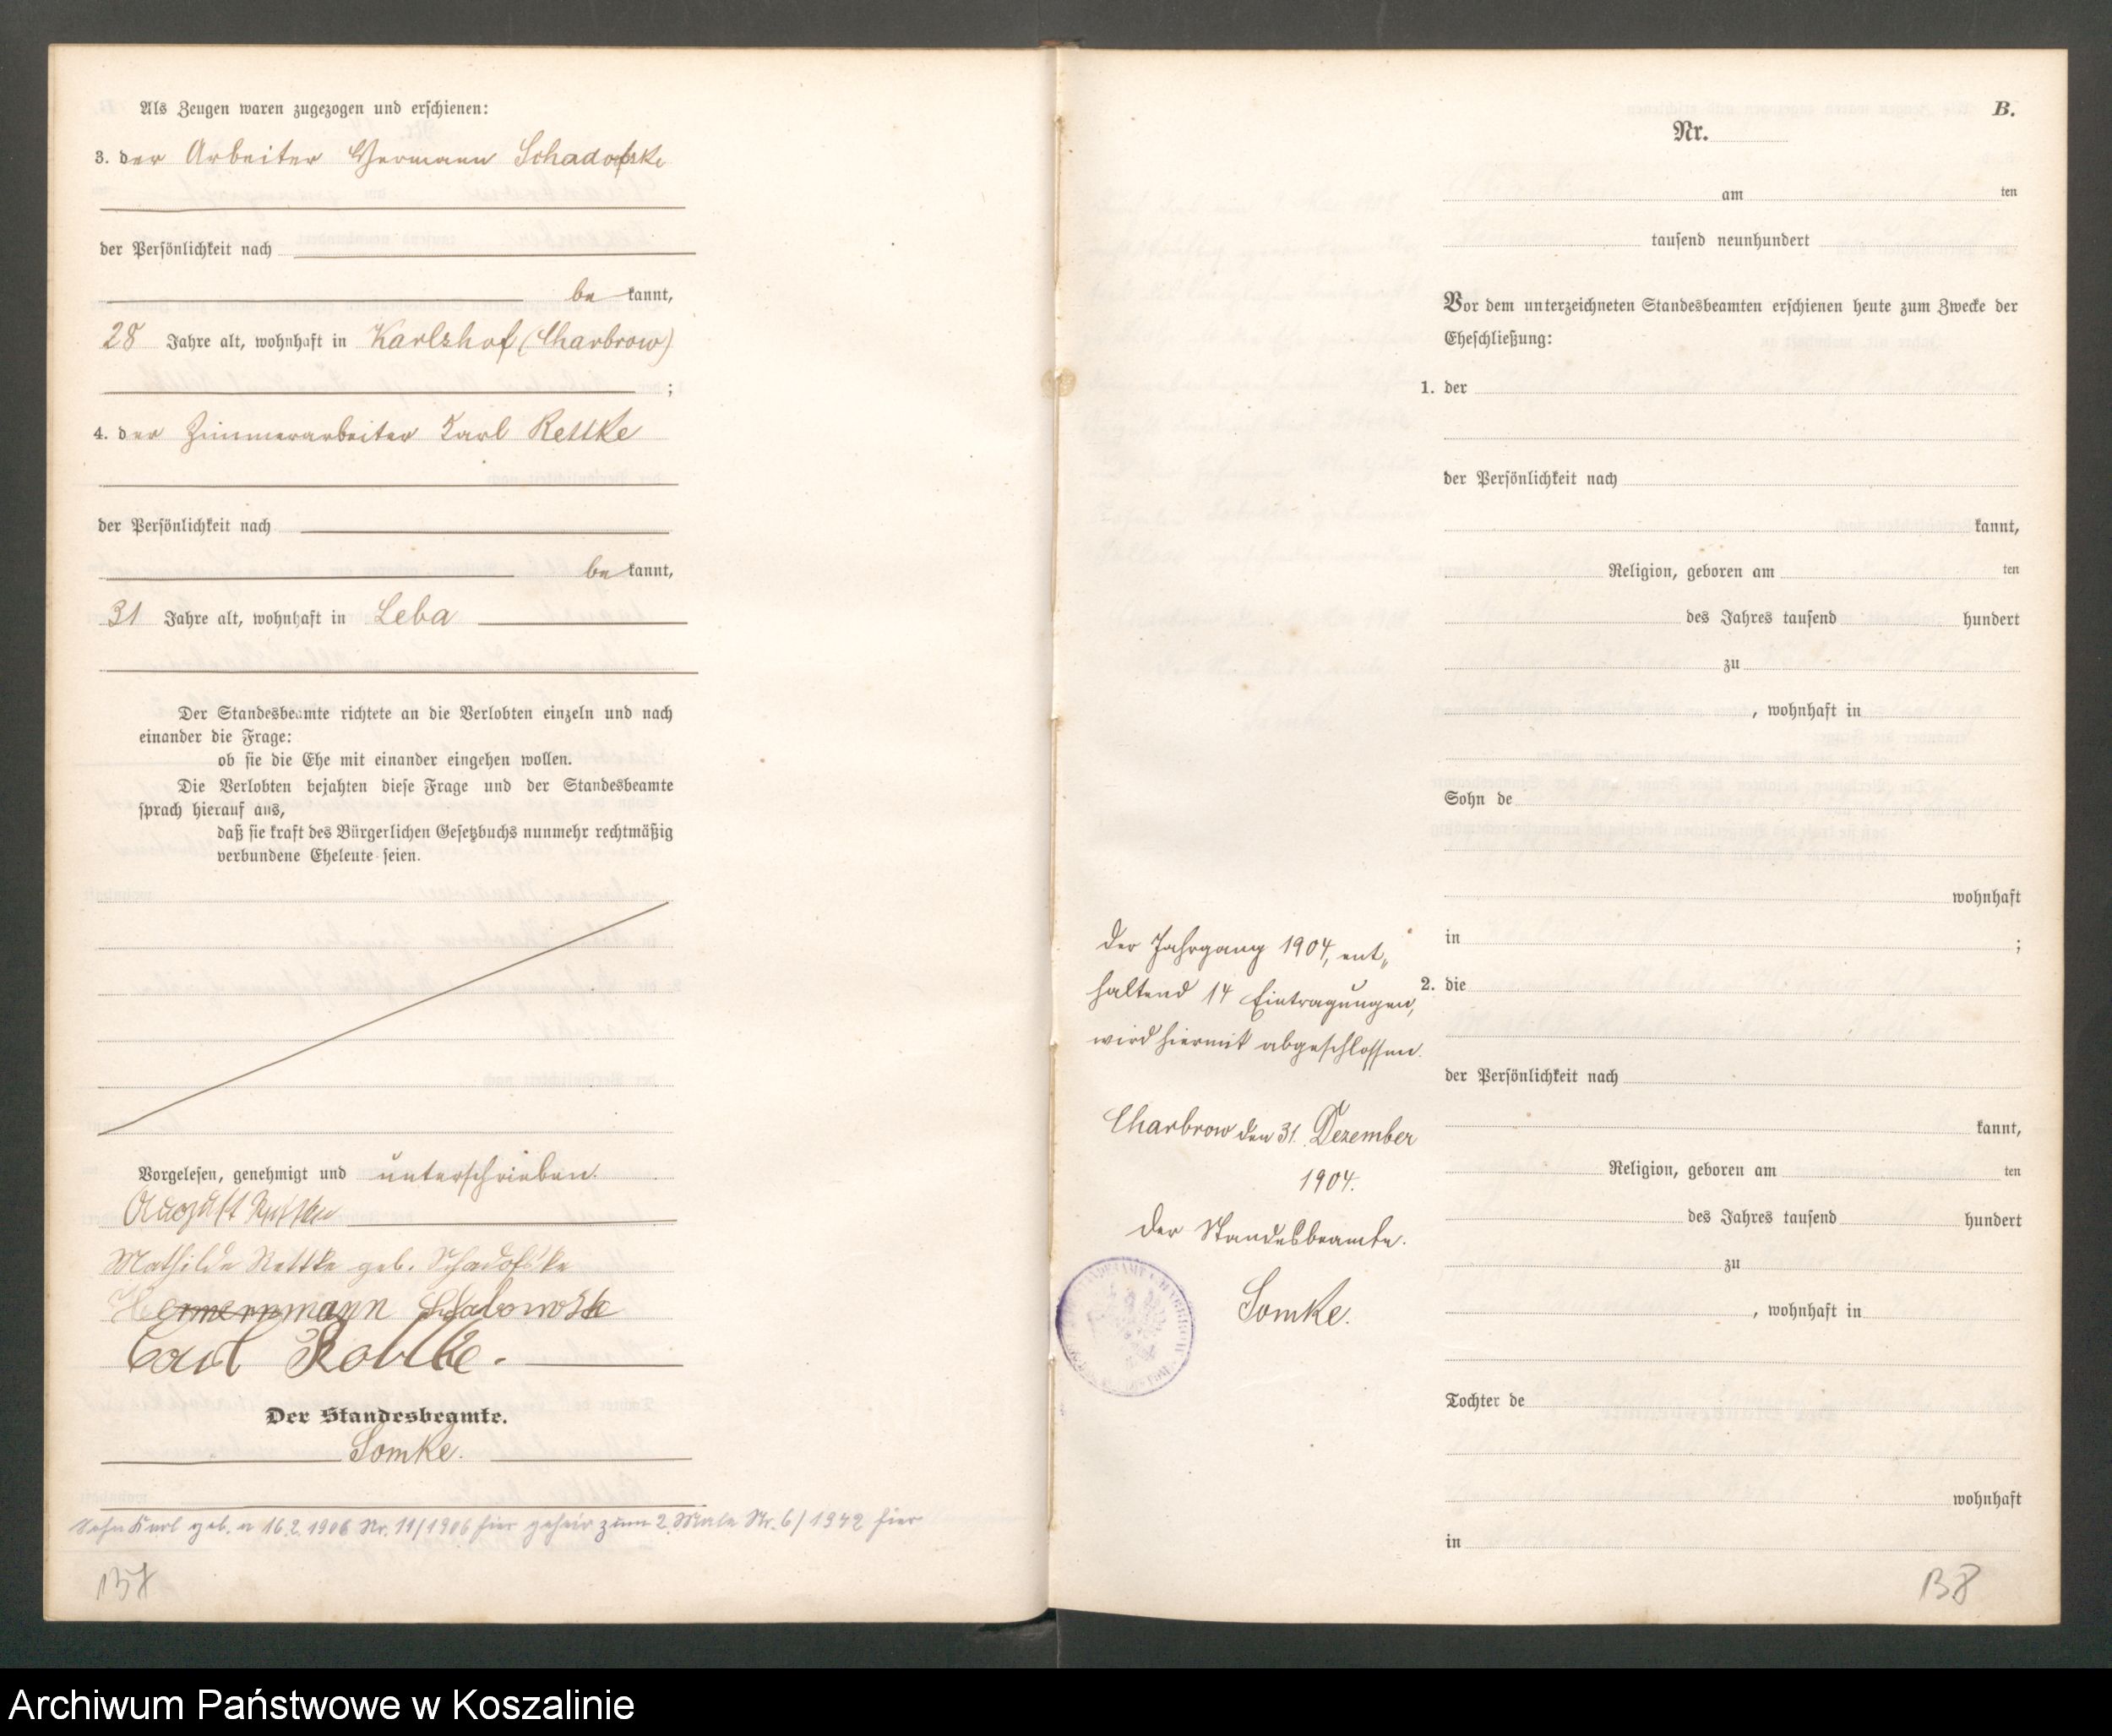 Als Zeugen waren zugezogen und erschienen:
3. der Arbeiter Hermann Schadofske
der Persönlichkeit nach
be kannt,
28 Jahre alt, wohnhaft in Karlshof (Charbrow)
;
4. der Zimmerarbeiter Karl Rettke
der Persönlichkeit nach
be kannt,
31 Jahre alt, wohnhaft in Leba
Der Standesbeamte richtete an die Verlobten einzeln und nach
einander die Frage:
ob sie die Ehe mit einander eingehen wollen.
Die Verlobten bejahten diese Frage und der Standesbeamte
sprach hierauf aus,
daß sie kraft des Bürgerlichen Gesetzbuchs nunmehr rechtmäßig
verbundene Eheleute seien.
Vorgelesen, genehmigt und unterschrieben.
August Rettke
Mathilde Rettke geb. Schadofske
Der Standesbeamte.
Somke.
Sohn Karl geb. a 16.2.1906 Nr. 11/1906 hier zum 2. Male Nr. 6/1942 hier
137
B.
Nr.
am ten
tausend neunhundert
Vor dem unterzeichneten Standesbeamten erschienen heute zum Zwecke der
Eheschließung:
1. der
der Persönlichkeit nach
kannt,
Religion, geboren am ten
des Jahres tausend hundert
zu
, wohnhaft in
Sohn de
wohnhaft
in ;
2. die
der Persönlichkeit nach
kannt,
Religion, geboren am ten
des Jahres tausend hundert
zu
, wohnhaft in
Tochter de
wohnhaft
in
Der Jahrgang 1904, ent„
haltend 14 Eintragungen,
wird hiermit abgeschlossen.
Charbrow den 31. Dezember
1904.
Der Standesbeamte.
Somke.
138
Archiwum Państwowe w Koszalinie